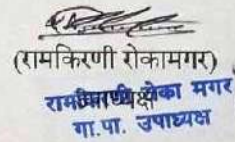 (रामकिरणी रोकामगर)
उपाध्यक्ष
रामकिरणी रोका मगर
गा.पा. उपाध्यक्ष